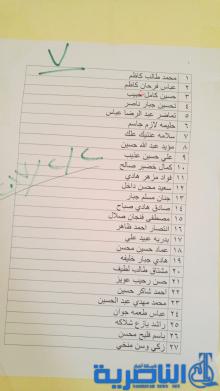 ٧
١ محمد طالب كاظم
٢ عباس فرحان كاظم
٣ حسين كامل حبيب
٤ تحسين جبار ناصر
٥ تماضر عبد الرضا عباس
٦ حليمه لازم جاسم
٧ سلامه عتيك علك
٨ مؤيد عبد الله حسين
٩ علي حسين عذيب
١٠ كمال خضير صالح
١١ فواد مزهر هادي
١٢ سعيد محسن داخل
١٣ جنان مسلم جبار
١٤ صادق هادي صباح
١٥ مصطفى فنجان صلال
١٦ انتصار احمد طاهر
١٧ بدريه عبيد علي
١٨ عماد حسين محسن
١٩ هادي جبار خليفه
٢٠ مشتاق طالب لطيف
٢١ حسن رحيب عويز
٢٢ احمد شاكر حسين
٢٣ محمد مهدي عبد الحسين
٢٤ عباس طعمه جوان
٢٥ راشد بازع شلاكه
٢٦ باسم فليح محسن
٢٧ زكي وسن منخي
الناصرية